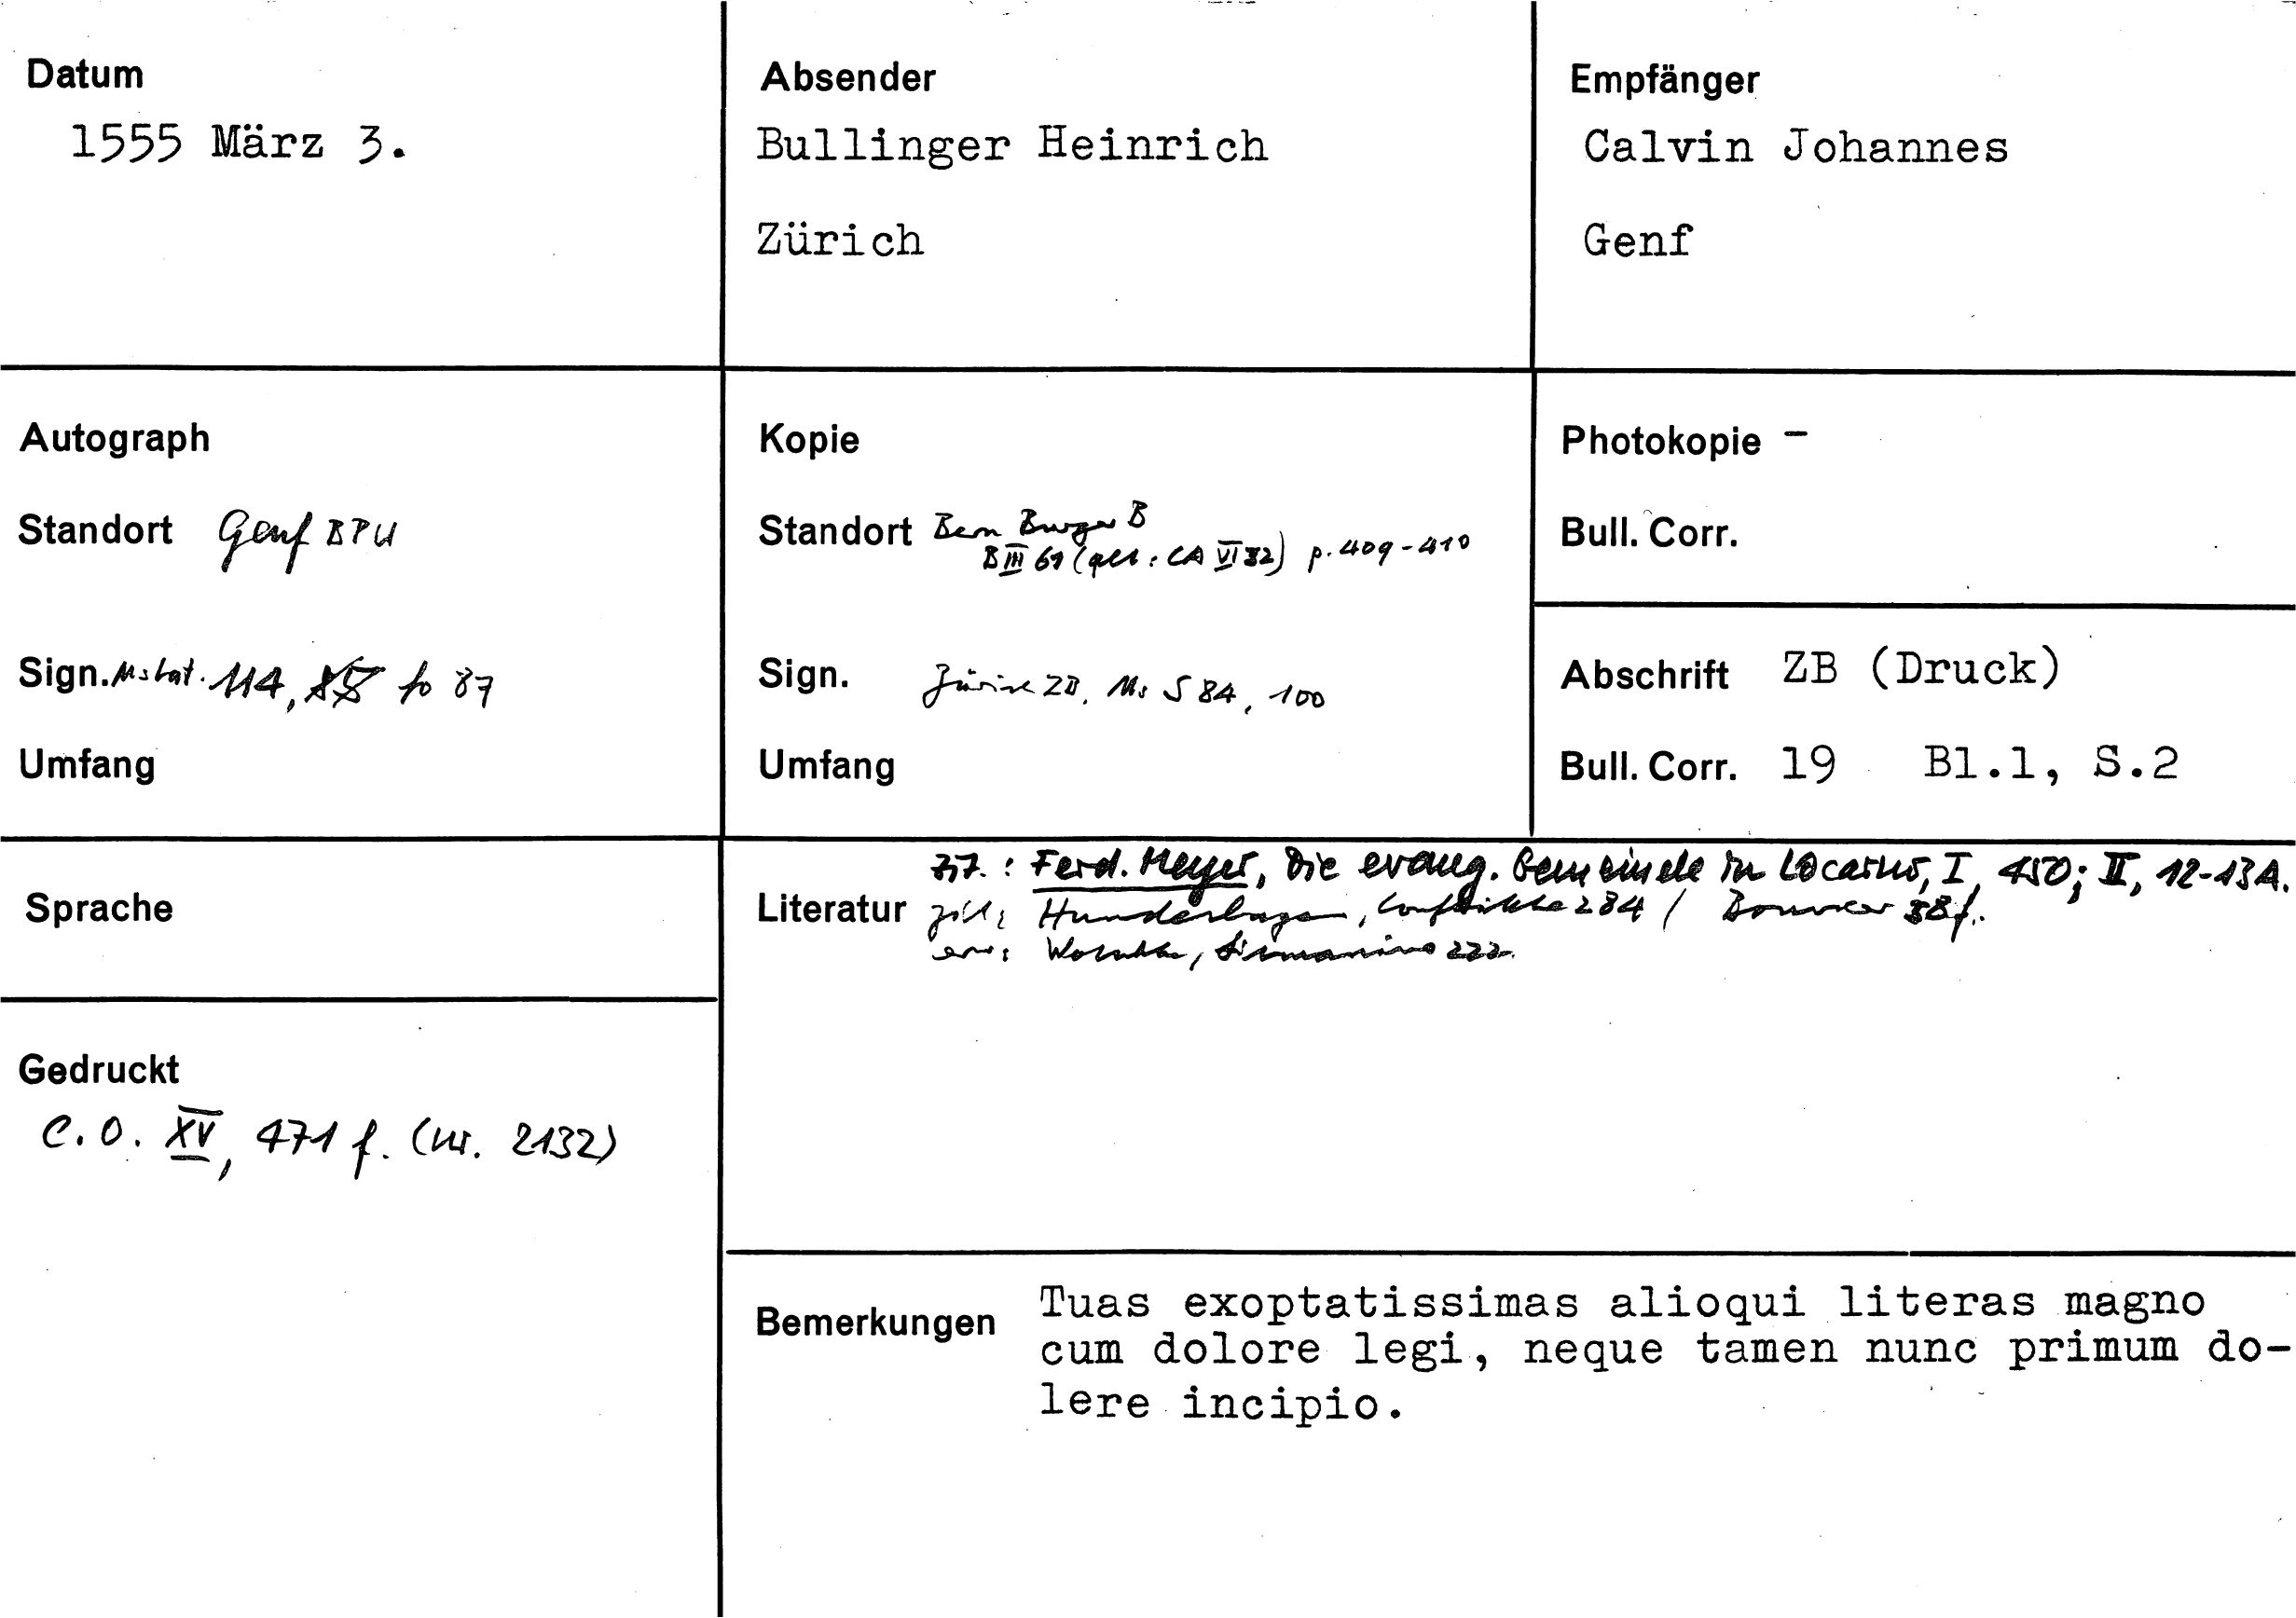 Datum
1555 März 3.
Absender
Bullinger Heinrich
Zürich
Empfänger
Calvin Johannes
Genf
Autograph
Standort Genf BPU
Sign. Ms lat. 114, fo 87
Umfang
Kopie
Standort Bern Burger B
B III 69 (: CA VI 32) p. 409-410
Sign. Zürich ZB, Ms S 84, 100
Umfang
Photokopie -
Bull. Corr.
Abschrift ZB (Druck)
Bull. Corr. 19 Bl.1, S.2
Sprache
Literatur
: Ferd. Meyer, Die evang. Gemeinde in Locarno, I, 450; II, 12-13A.
zit: Hundeshagen, Conflikte 284 / Bouvier 38f.
erw: Wotschke, Lismanino 222.
Gedruckt
C.O. XV, 471 f. (Nr. 2132)
Bemerkungen
Tuas exoptatissimas alioqui literas magno
cum dolore legi, neque tamen nunc primum do-
lere incipio.